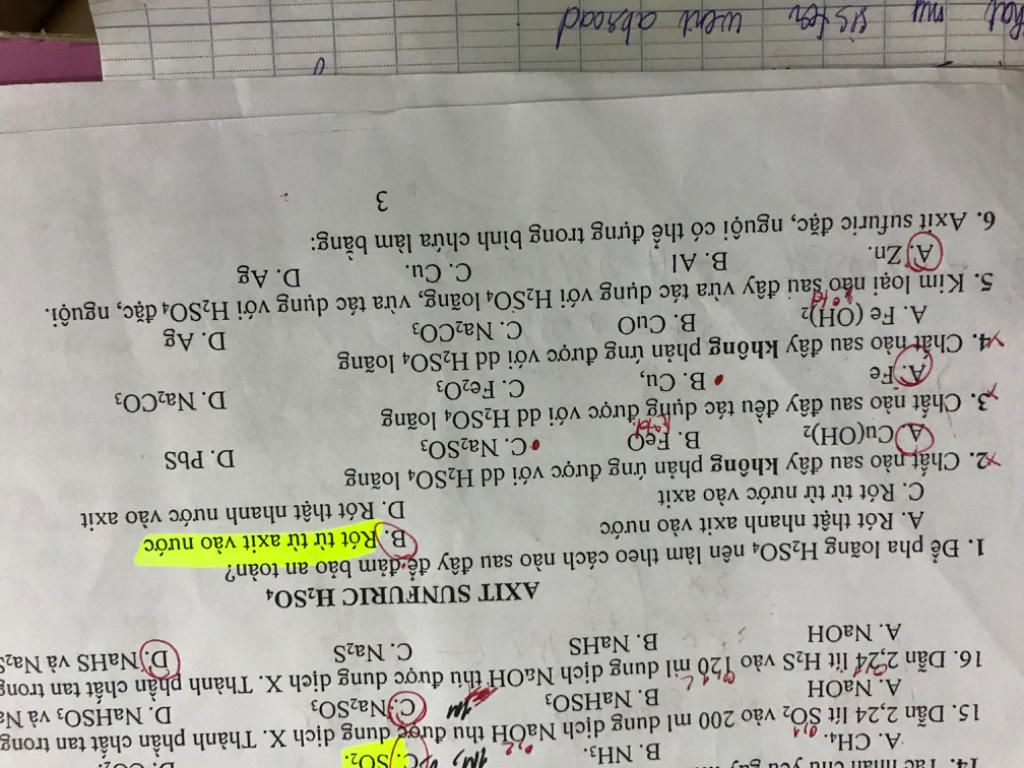 14. Tác nhân chủ yếu
A. CH₄. B. NH₃. C. SO₂.
15. Dẫn 2,24 lít SO₂ vào 200 ml dung dịch NaOH thu được dung dịch X. Thành phần chất tan trong
0,1 0,2 1M
A. NaOH B. NaHSO₃ C. Na₂SO₃ D. NaHSO₃ và Na
16. Dẫn 2,24 lít H₂S vào 120 ml dung dịch NaOH thu được dung dịch X. Thành phần chất tan trong
A. NaOH B. NaHS C. Na₂S D. NaHS và Na₂S
AXIT SUNFURIC H₂SO₄
1. Để pha loãng H₂SO₄ nên làm theo cách nào sau đây để đảm bảo an toàn?
A. Rót thật nhanh axit vào nước B. Rót từ từ axit vào nước
C. Rót từ từ nước vào axit D. Rót thật nhanh nước vào axit
2. Chất nào sau đây không phản ứng được với dd H₂SO₄ loãng
A. Cu(OH)₂ B. FeO C. Na₂SO₃ D. PbS
3. Chất nào sau đây đều tác dụng được với dd H₂SO₄ loãng
A. Fe B. Cu, C. Fe₂O₃ D. Na₂CO₃
4. Chất nào sau đây không phản ứng được với dd H₂SO₄ loãng
A. Fe (OH)₂ B. CuO C. Na₂CO₃ D. Ag
5. Kim loại nào sau đây vừa tác dụng với H₂SO₄ loãng, vừa tác dụng với H₂SO₄ đặc, nguội.
A. Zn. B. Al C. Cu. D. Ag
6. Axit sufuric đặc, nguội có thể đựng trong bình chứa làm bằng:
3
my sister went absoad